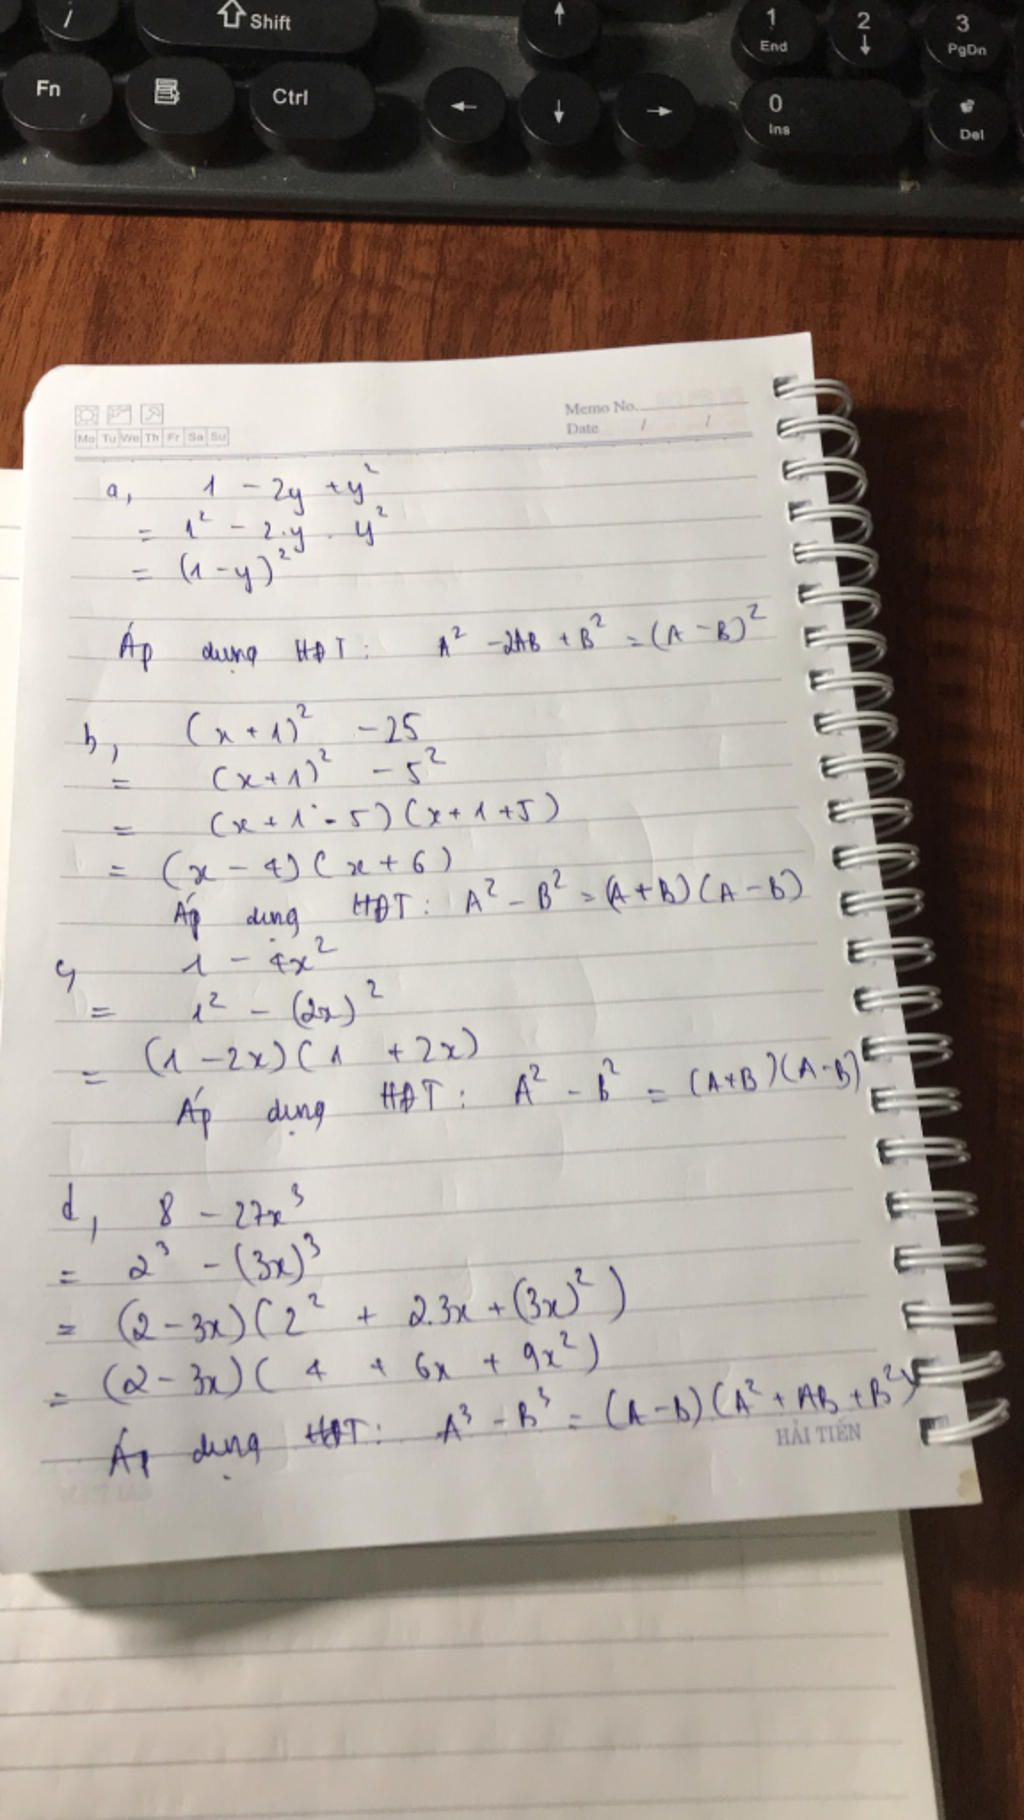 /
Shift
↑
1
End
2
↓
3
PgDn
Fn
Ctrl
←
↓
→
0
Ins
Del
Memo No.
Mo Tu We Th Fr Sa Su
Date / /
a, 1 - 2y + y²
= 1² - 2.y . y²
= (1-y)²
Áp dụng HĐT: A² - 2AB + B² = (A - B)²
b, (x+1)² - 25
= (x+1)² - 5²
= (x+1-5)(x+1+5)
= (x-4)(x+6)
Áp dụng HĐT: A² - B² = (A+B)(A-B)
c, 1 - 4x²
= 1² - (2x)²
= (1-2x)(1+2x)
Áp dụng HĐT: A² - B² = (A+B)(A-B)
d, 8 - 27x³
= 2³ - (3x)³
= (2-3x)(2² + 2.3x + (3x)²)
= (2-3x)(4 + 6x + 9x²)
Áp dụng HĐT: A³ - B³ = (A-B)(A² + AB + B²)
HẢI TIẾN